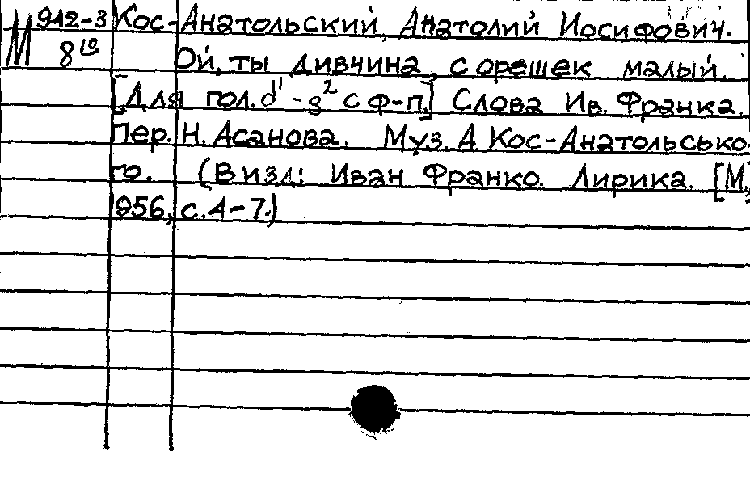 М 942-3 Кос-Анатольский, Анатолий Иосифович.
8 Ой, ты дивчина, с орешек малый.
[Для гол. d¹-g² с ф-п.] Слова Ив. Франка.
Пер. Н. Асанова. Муз. А Кос-Анатолько-
го. (В изд: Иван Франко. Лирика. [М.,
1956, с. 4-7.)